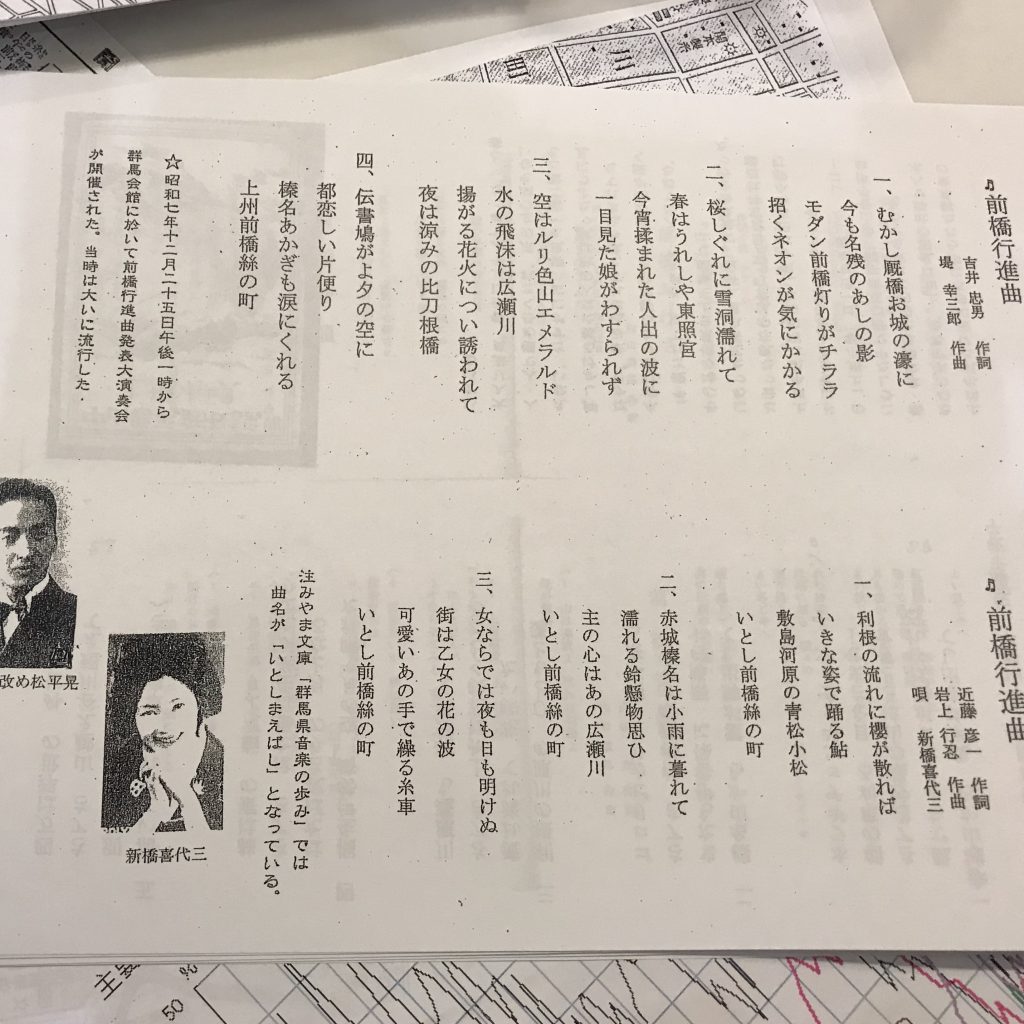 ♫前橋行進曲
吉井 忠男 作詞
堤 幸三郎 作曲
一、むかし厩橋お城の濠に
今も名残のあしの影
モダン前橋灯りがチララ
招くネオンが気にかかる
二、桜しぐれに雪洞濡れて
春はうれしや東照宮
今宵揉まれた人出の波に
一目見た娘がわすられず
三、空はルリ色山エメラルド
水の飛沫は広瀬川
揚がる花火につい誘われて
夜は涼みの比刀根橋
四、伝書鳩がよ夕の空に
都恋しい片便り
榛名あかぎも涙にくれる
上州前橋絲の町
☆昭和七年十二月二十五日午後一時から
群馬会館に於いて前橋行進曲発表大演奏会
が開催された。当時は大いに流行した.
♫前橋行進曲
近藤 彦一 作詞
岩上 行忍 作曲
唄 新橋喜代三
一、利根の流れに櫻が散れば
いきな姿で踊る鮎
敷島河原の青松小松
いとし前橋絲の町
二、赤城榛名は小雨に暮れて
濡れる鈴懸物思ひ
主の心はあの広瀬川
いとし前橋絲の町
三、女ならでは夜も日も明けぬ
街は乙女の花の波
可愛いあの手で繰る糸車
いとし前橋絲の町
注みやま文庫「群馬県音楽の歩み」では
曲名が「いとしまえばし」となっている。
改め松平晃
新橋喜代三
50